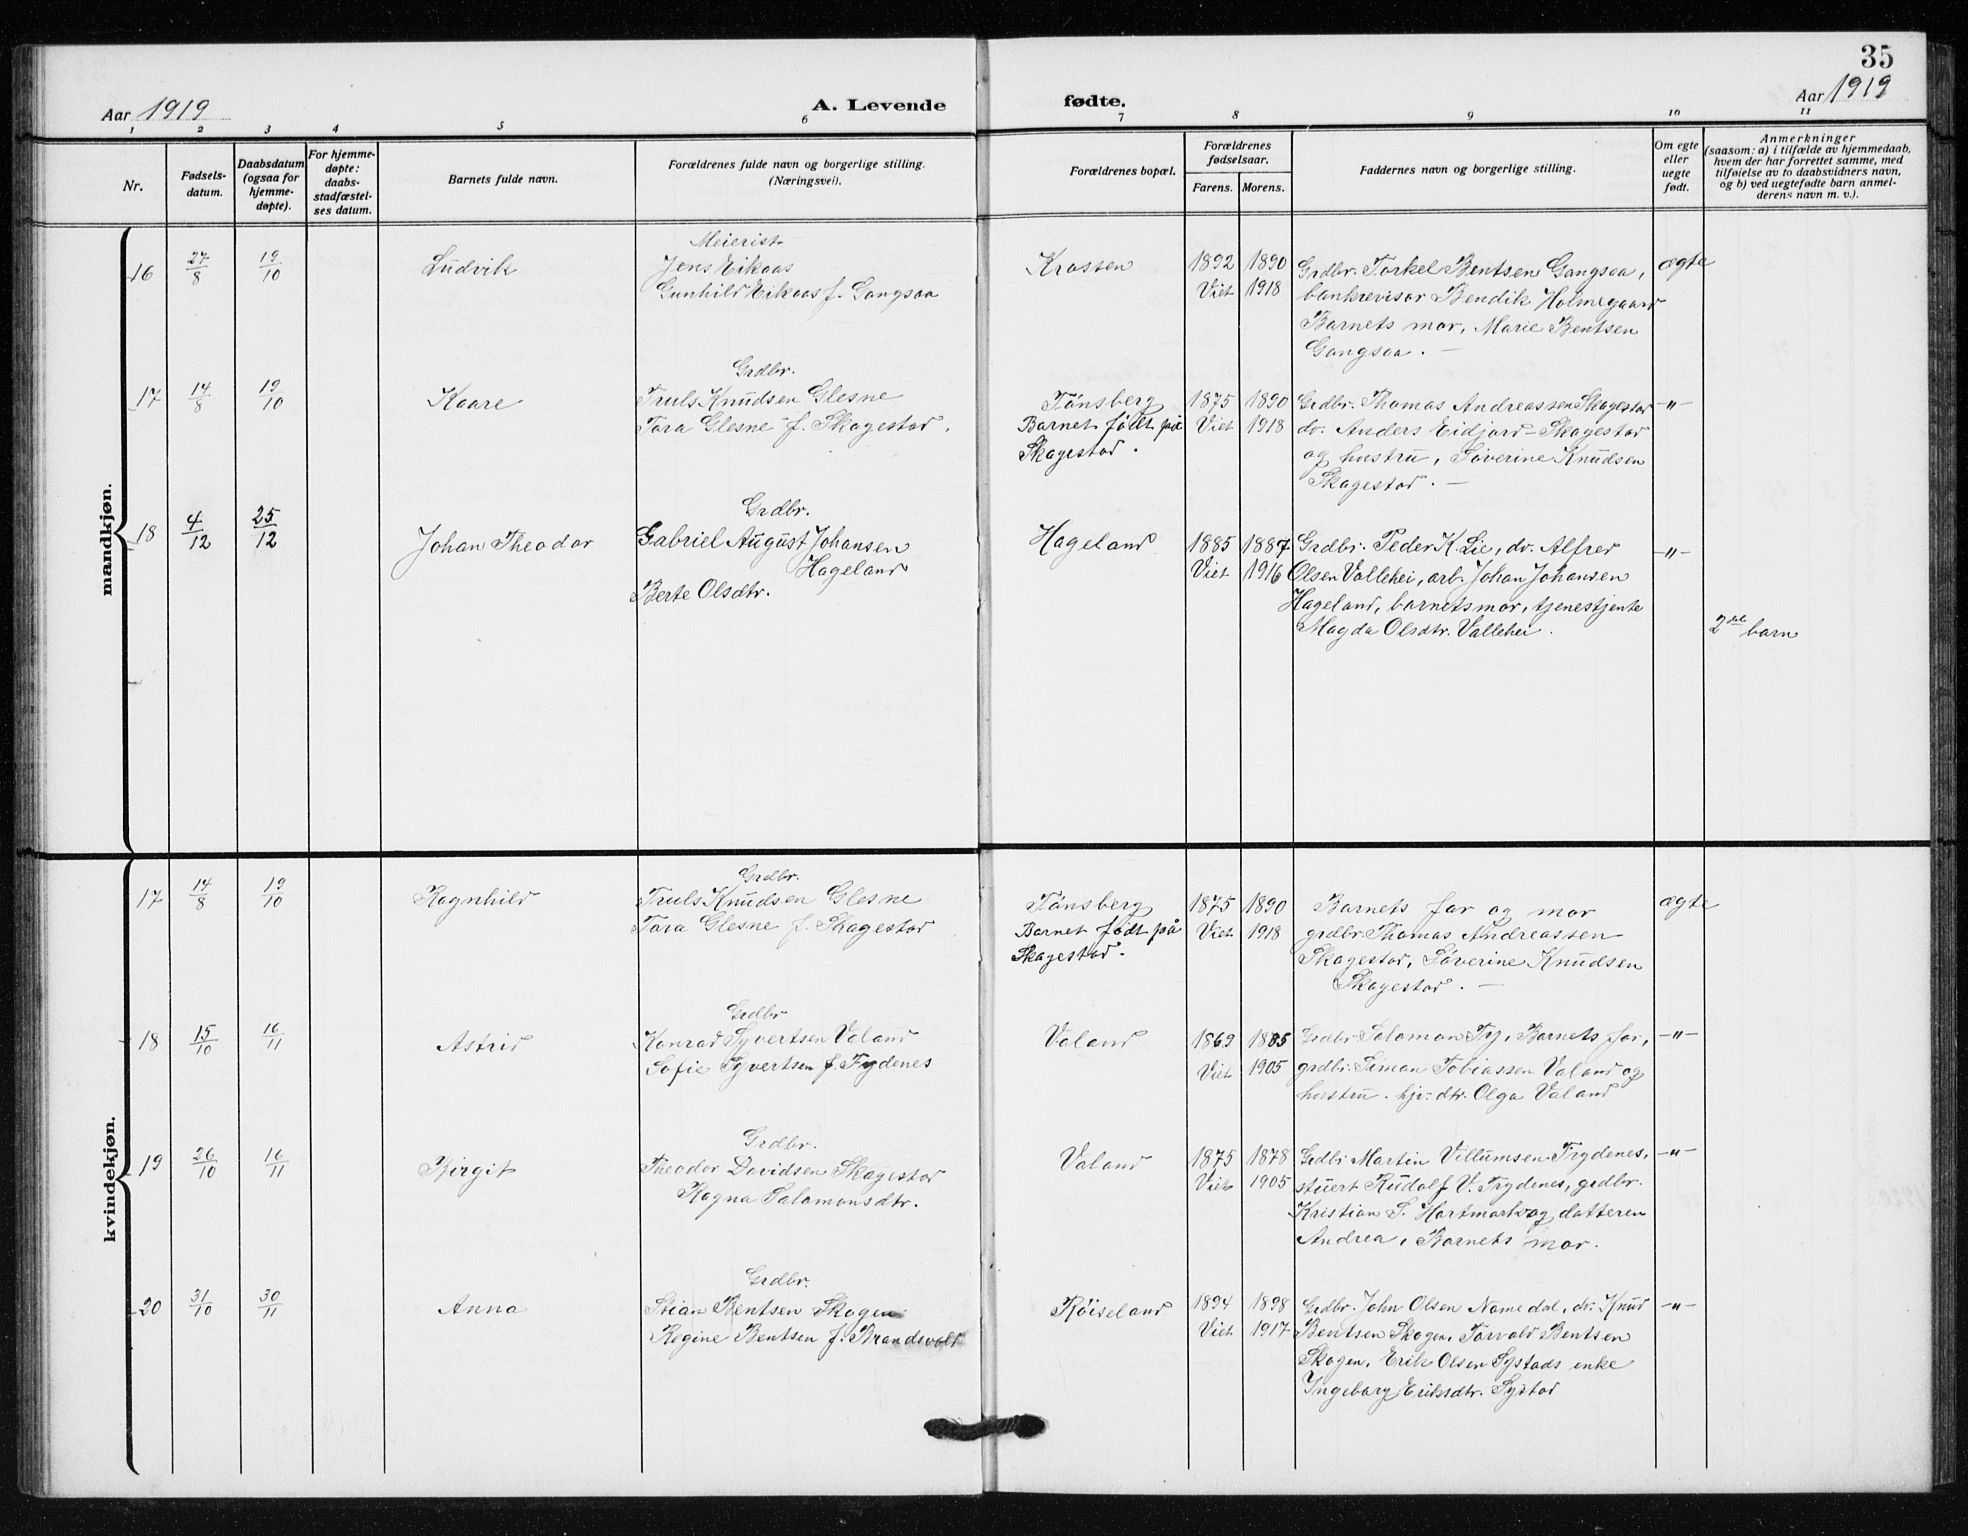 35
Aar 1919
A. Levende
fødte.
Aar 1919
1 2 3 4 5 6 7 8 9 10 11
Nr.
Fødsels-
datum.
Daabsdatum
(ogsaa for
hjemme-
døpte).
For hjemme-
døpte:
daabs-
stadfæstel-
ses datum.
Barnets fulde navn.
Forældrenes fulde navn og borgerlige stilling.
(Næringsvei).
Forældrenes bopæl.
Forældrenes
fødselsaar.
Farens. Morens.
Faddernes navn og borgerlige stilling.
Om egte
eller
uegte
født.
Anmerkninger
(saasom: a) i tilfælde av hjemmedaab,
hvem der har forrettet samme, med
tilføielse av to daabsvidners navn,
og b) ved uegtefødte barn anmel-
derens navn m. v.).
mandkjøn.
16 27/8 19/10 Ludvik
Meierist
Jens Eikaas
Gunhild Eikaas f. Gangsaa
Krossen
1892 1890
Viet 1918
Grdbr. Torkel Bentsen Gangsaa,
bankrevisor Bendik Holmegaard
Barnets mor, Marie Bentsen
Gangsaa. —
ægte
17 14/8 19/10 Kaare
Grdbr.
Truls Knudsen Glesne
Tara Glesne f. Skagestad.
Tönsberg
Barnet født på
Skagestad.
1875 1890
Viet 1918
Grdbr. Thomas Andreassen Skagestad
do. Anders Eidjord-Skagestad
og hustru, Söverine Knudsen
Skagestad. —
-"-
18 4/12 25/12 Johan Theodor
Grdbr.
Gabriel August Johansen
Hageland
Berte Olsdtr.
Hageland
1885 1887
Viet 1916
Grdbr. Peder K. Lie, do. Alfred
Olsen Vallehei, arb. Johan Johansen
Hageland, barnets mor, tjenestjente
Magda Olsdtr. Vallehei.
-"-
2det barn
kvindekjøn.
17 14/8 19/10 Ragnhild
Grdbr.
Truls Knudsen Glesne
Tara Glesne f. Skagestad
Tönsberg
Barnet født på
Skagestad.
1875 1890
Viet 1918
Barnets far og mor
grdbr. Thomas Andreassen
Skagestad, Söverine Knudsen
Skagestad. —
ægte
18 15/10 16/11 Astrid
Grdbr
Konrad Syvertsen Valand
Sofie Syvertsen f. Tydenes
Valand
1869 1885
Viet 1905
Grdbr Salomon Try, Barnets far,
grdbr. Simon Tobiassen Valand og
hustru. hj. dtr. Olga Valand
-"-
19 26/10 16/11 Birgit
Grdbr.
Theodor Davidsen Skagestad
Ragna Salomonsdtr.
Valand
1875 1878
Viet 1905
Grdbr Martin Villumsen Trydenes,
stuert Rudolf V. Trydenes, grdbr.
Kristian S. Hartmark og datteren
Andrea, Barnets mor.
-"-
20 31/10 30/11 Anna
Grdbr.
Stian Bentsen Skogen
Regine Bentsen f. Brandsvolt
Röiseland
1894 1898
Viet 1917
Grdbr. John Olsen Namedal, do. Knud
Bentsen Skogen, Torvald Bentsen
Skogen, Erik Olsen Systads enke
Ingeborg Eriksdtr. Systad
-"-